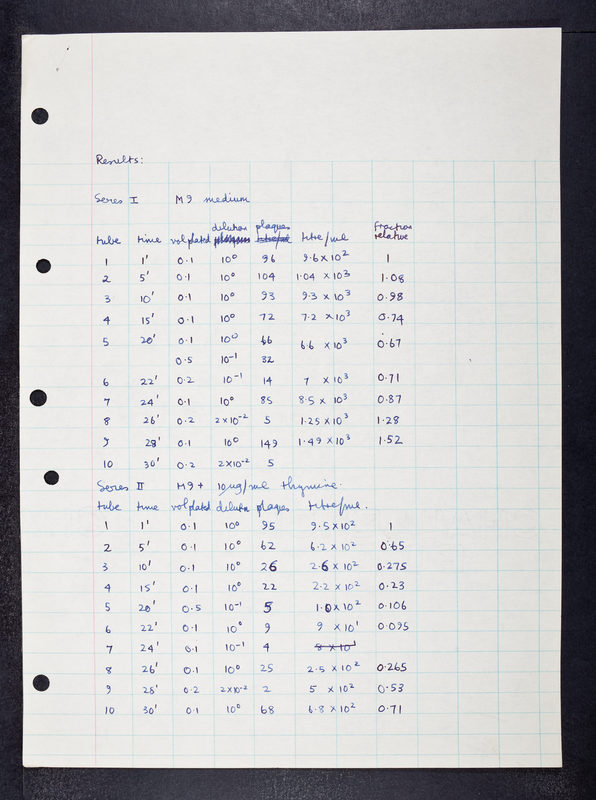 Results:
Series I M9 medium
dilution plaques fraction
tube time vol plated titre/ml relative
1 1' 0.1 10⁰ 96 9.6 x 10² 1
2 5' 0.1 10⁰ 104 1.04 x 10³ 1.08
3 10' 0.1 10⁰ 93 9.3 x 10³ 0.98
4 15' 0.1 10⁰ 72 7.2 x 10³ 0.74
5 20' 0.1 10⁰ 66 6.6 x 10³ 0.67
0.5 10⁻¹ 32
6 22' 0.2 10⁻¹ 14 7 x 10³ 0.71
7 24' 0.1 10⁰ 85 8.5 x 10³ 0.87
8 26' 0.2 2x10⁻² 5 1.25 x 10³ 1.28
9 28' 0.1 10⁰ 149 1.49 x 10³ 1.52
10 30' 0.2 2x10⁻² 5
Series II M9 + 10ug/ml thymine.
tube time vol plated dilution plaques titre/ml.
1 1' 0.1 10⁰ 95 9.5 x 10² 1
2 5' 0.1 10⁰ 62 6.2 x 10² 0.65
3 10' 0.1 10⁰ 26 2.6 x 10² 0.275
4 15' 0.1 10⁰ 22 2.2 x 10² 0.23
5 20' 0.5 10⁻¹ 5 1.0 x 10² 0.106
6 22' 0.1 10⁰ 9 9 x 10¹ 0.095
7 24' 0.1 10⁻¹ 4 8 x 10¹
8 26' 0.1 10⁰ 25 2.5 x 10² 0.265
9 28' 0.2 2x10⁻² 2 5 x 10² 0.53
10 30' 0.1 10⁰ 68 6.8 x 10² 0.71